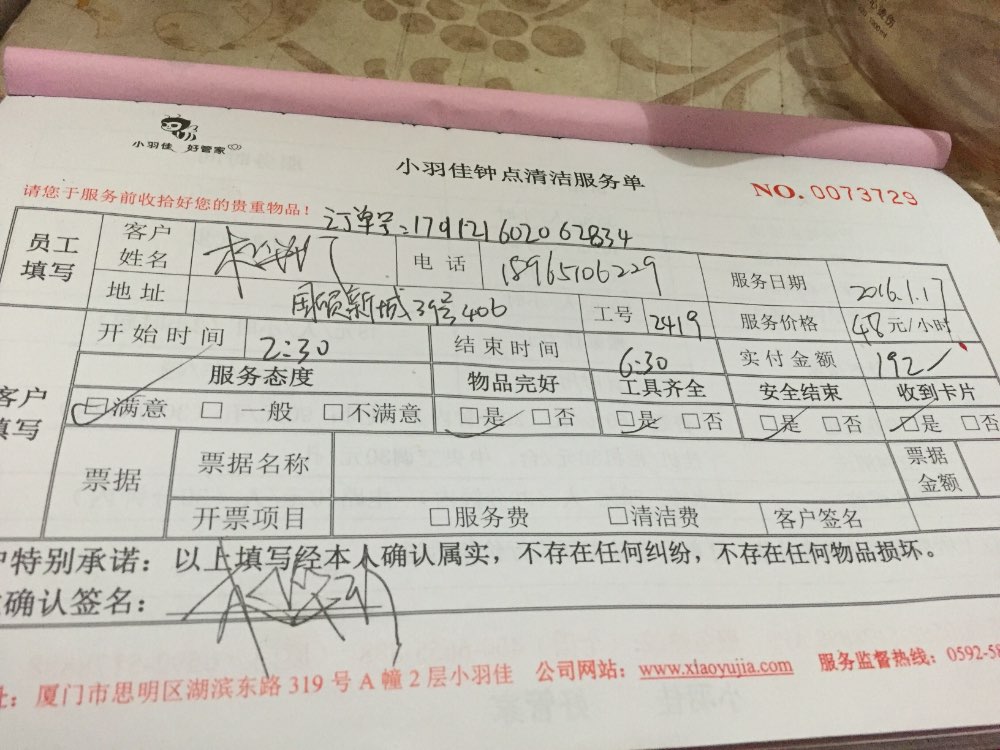 小羽佳 好管家
小羽佳钟点清洁服务单
NO. 0073729
请您于服务前收拾好您的贵重物品!
订单号:179121602062834
员工填写 客户姓名 电话 18965106229 服务日期 2016.1.17
地址 国硕新城39号406 工号 2419 服务价格 48元/小时
客户填写 开始时间 2:30 结束时间 6:30 实付金额 192
服务态度 物品完好 工具齐全 安全结束 收到卡片
□满意 □一般 □不满意 □是 □否 □是 □否 □是 □否 □是 □否
票据 票据名称 票据金额
开票项目 □服务费 □清洁费 客户签名
户特别承诺:以上填写经本人确认属实,不存在任何纠纷,不存在任何物品损坏。
确认签名:
址:厦门市思明区湖滨东路319号A幢2层小羽佳 公司网站:www.xiaoyujia.com 服务监督热线:0592-58